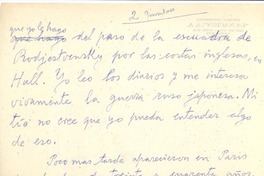 2 Inventarse
que yo le hago
que hago del paso de la escuadra de
Rodjestvensky por las costas inglesas, en
Hull. Yo leo los diarios y me intereso
vivamente la guerra ruso japonesa. Mi
tío no cree que yo pueda entender algo
de eso.
Poco mas tarde aparecieron en Paris
de treinta a cuarenta años.